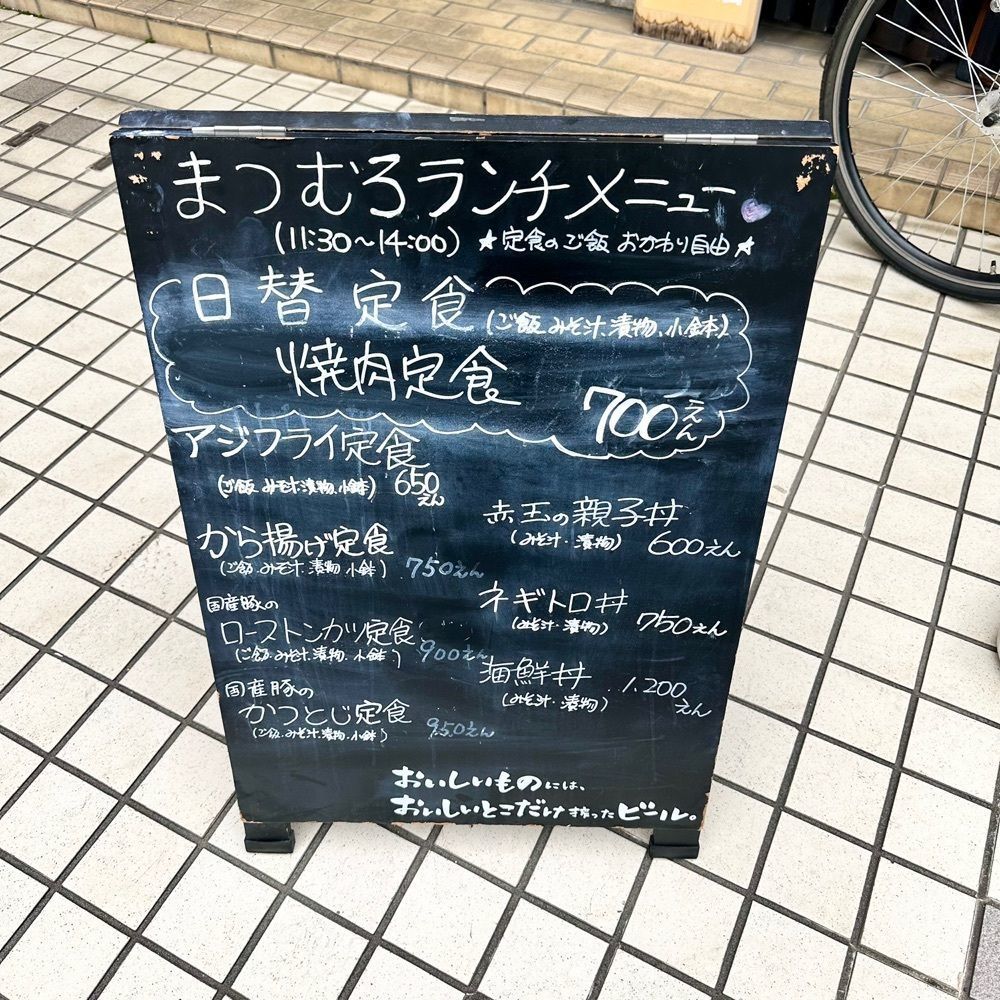 まつむろランチメニュー
(11:30〜14:00) ★定食のご飯 おかわり自由★
日替定食(ご飯.みそ汁.漬物、小鉢)
焼肉定食
700えん
アジフライ定食
(ご飯.みそ汁.漬物.小鉢) 650えん
から揚げ定食
(ご飯.みそ汁.漬物 小鉢) 750えん
国産豚の
ローストンカツ定食
(ご飯.みそ汁.漬物.小鉢) 900えん
国産豚の
かつとじ定食
(ご飯.みそ汁.漬物.小鉢) 950えん
赤玉の親子丼
(みそ汁・漬物) 600えん
ネギトロ丼
(みそ汁・漬物) 750えん
海鮮丼
(みそ汁・漬物) 1.200えん
おいしいものには、
おいしいとこだけ搾ったビール。